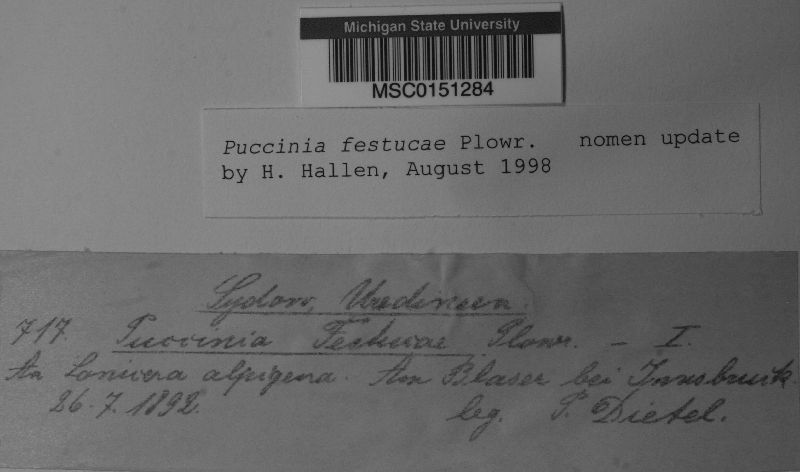 Michigan State University
MSC0151284
Puccinia festucae Plowr. nomen update
by H. Hallen, August 1998
Sydow, Uredineen.
717. Puccinia Festucae Plowr. – I.
An Lonicera alpigena. Am Blaser bei Innsbruck.
26.7.1892. leg. P. Dietel.